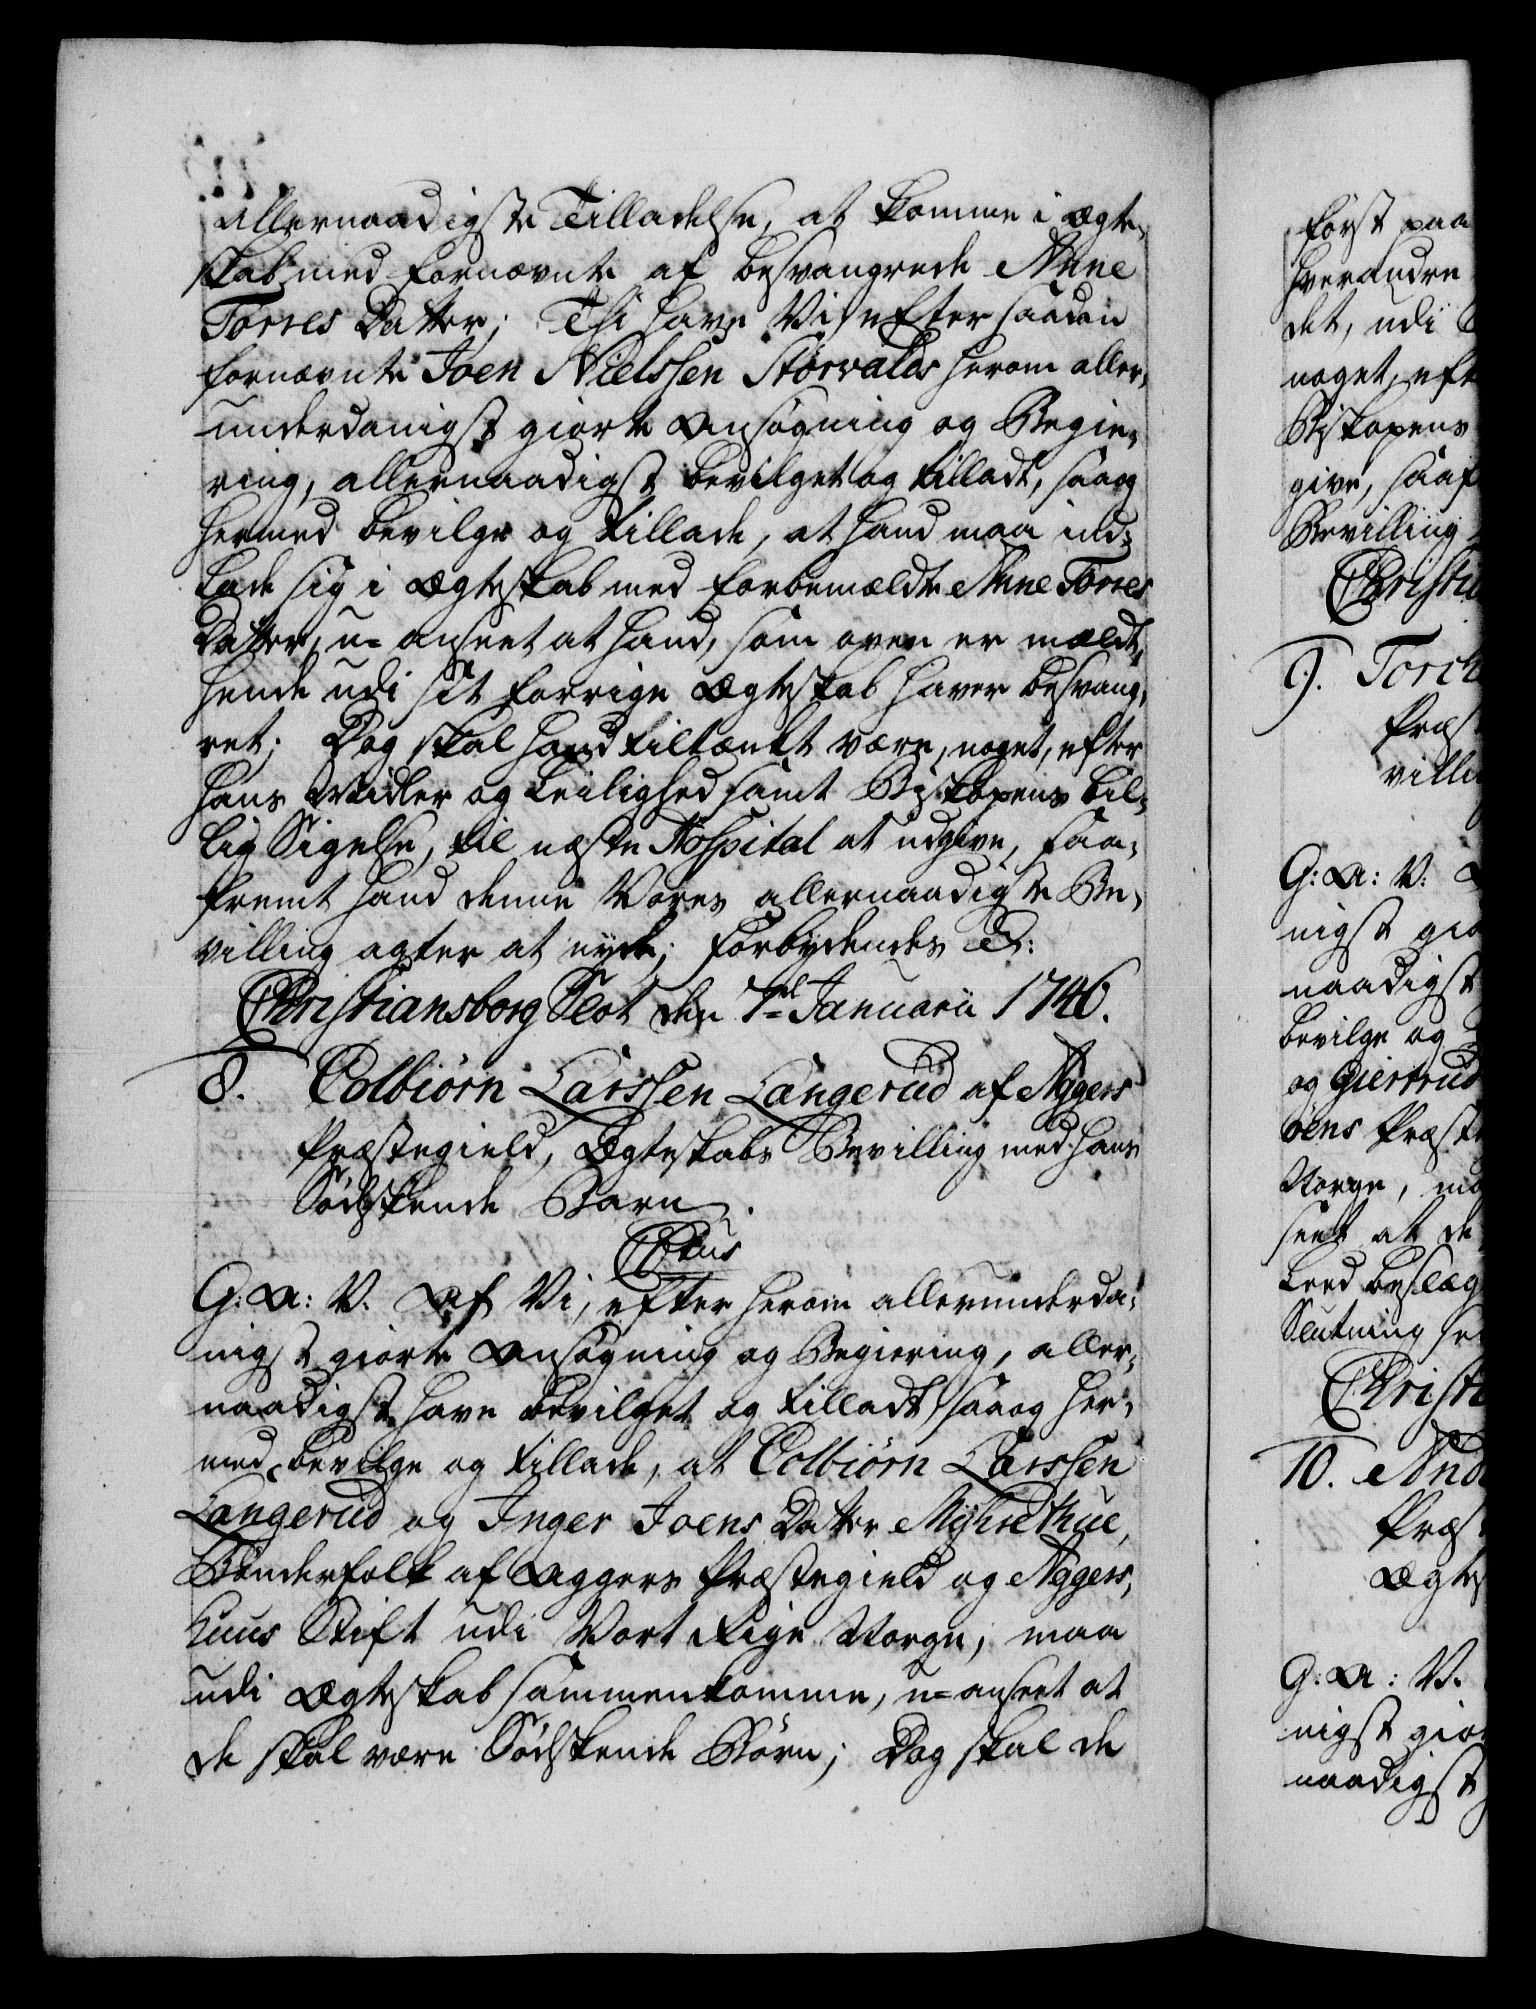 Allernaadigste Tilladelse, at komme i Ægte-
skab med fornævnte af besvangrede Anne
Torres Datter; Thi have Vi, efter saadan
fornævnte Joen Nielssen Størvalds herom aller-
underdanigst giorte Ansøgning og Begie-
ring, allernaadigst bevilget og tilladt, saa og
hermed bevilge og tillade, at hand maa ind-
lade sig i Ægteskab med forbemældte Anne Torres
Datter, u-anseet at hand, som oven er mældt,
hende udi sit forrige Ægteskab haver besvang-
ret; Dog skal hand tiltænkt være, noget, efter
hans Midler og Leilighed samt Biskopens bil-
lig Sigelse, til næste Hospital at udgive, saa-
fremt hand denne Vores allernaadigste Be-
villing agter at nyde; Forbydendes &:
Christiansborg Slot den 7de Januarii 1746.
8. Colbiørn Larssen Langerud af Aggers
Præstegield, Ægteskabs Bevilling med hans
Sødskende Barn.
CXtus
G: A: V. At Vi, efter herom allerunderda-
nigst giorte Ansøgning og Begiering, aller-
naadigst have bevilget og tilladt, saa og her-
med bevilge og tillade, at Colbiørn Larssen
Langerud og Inger Joens Datter Myhrethue,
Bønderfolk af Aggers Præstegield og Aggers-
huus Stift udi Vort Rige Norge, maa
udi Ægteskab sammenkomme, u-anseet at
de skal være Sødskende Børn; Dog skal de
først paa
hverandre
det, udi
noget, eft
Biskopens
give, saaf
Bevilling
Christi
9. Torch
Præs
villi
G: A: V:
nigst gio
naadigst
bevilge og
og Giertrud
øens Præst
Norge, ma
seet at de
Leed beslæg
Slutning se
Christi
10. And
Præs
Ægte
G: A: V.
nigst gio
naadigst